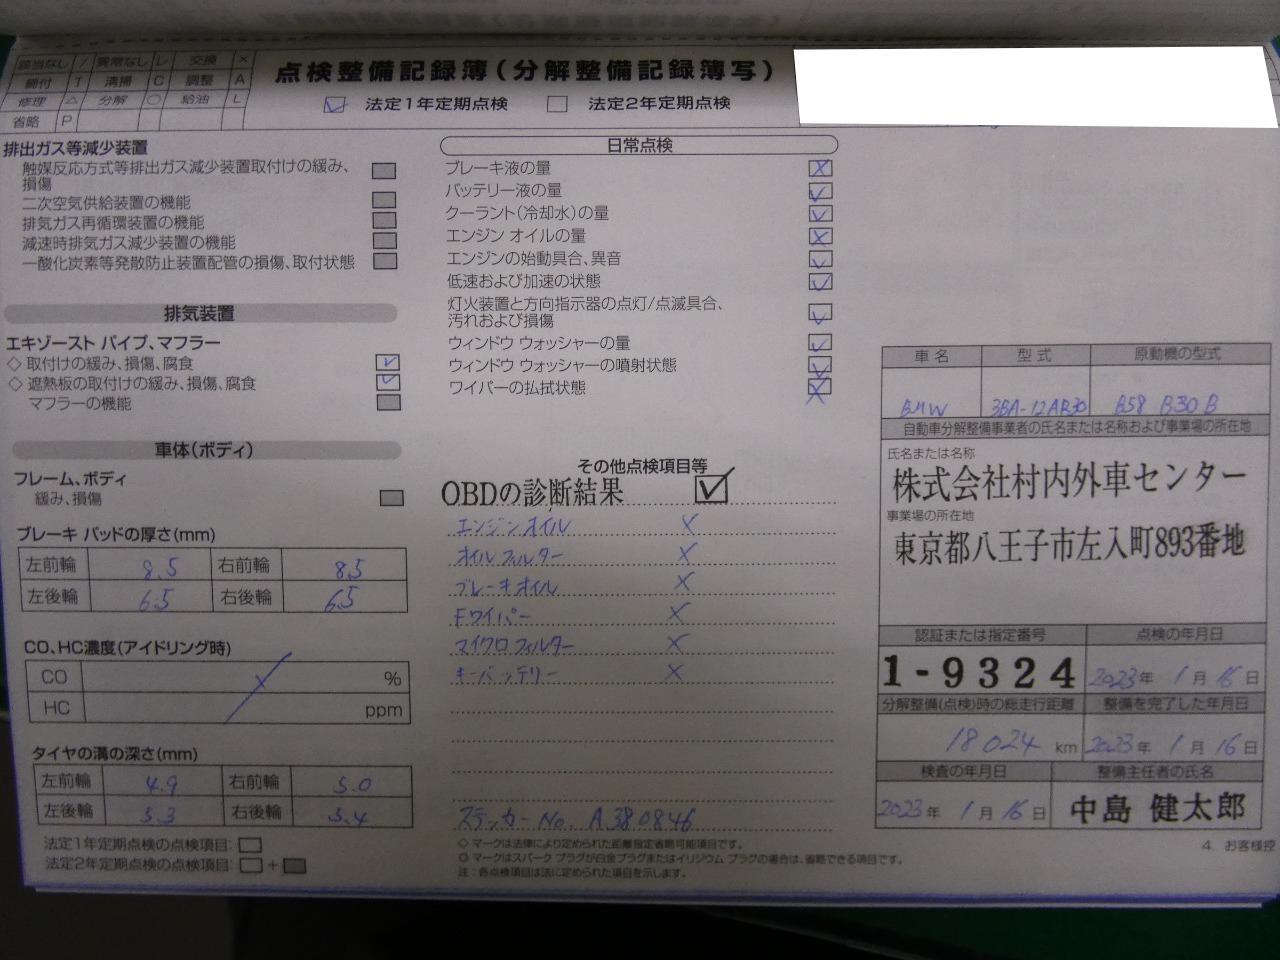 該当なし / 異常なし レ 交換 ×
締付 T 清掃 C 調整 A
修理 △ 分解 ○ 給油 L
省略 P
点検整備記録簿(分解整備記録簿写)
レ 法定1年定期点検 法定2年定期点検
排出ガス等減少装置
触媒反応方式等排出ガス減少装置取付けの緩み、
損傷
二次空気供給装置の機能
排気ガス再循環装置の機能
減速時排気ガス減少装置の機能
一酸化炭素等発散防止装置配管の損傷、取付状態
排気装置
エキゾースト パイプ、マフラー
◇ 取付けの緩み、損傷、腐食 レ
◇ 遮熱板の取付けの緩み、損傷、腐食 レ
マフラーの機能
車体(ボディ)
フレーム、ボディ
緩み、損傷
ブレーキ パッドの厚さ(mm)
左前輪 8.5 右前輪 8.5
左後輪 6.5 右後輪 6.5
CO、HC濃度(アイドリング時)
CO %
HC ppm
タイヤの溝の深さ(mm)
左前輪 4.9 右前輪 5.0
左後輪 5.3 右後輪 5.4
法定1年定期点検の点検項目:
法定2年定期点検の点検項目: +
日常点検
ブレーキ液の量 ×
バッテリー液の量 レ
クーラント(冷却水)の量 レ
エンジン オイルの量 ×
エンジンの始動具合、異音 レ
低速および加速の状態 レ
灯火装置と方向指示器の点灯/点滅具合、
汚れおよび損傷 レ
ウィンドウ ウォッシャーの量 レ
ウィンドウ ウォッシャーの噴射状態 レ
ワイパーの払拭状態 ×
その他点検項目等
OBDの診断結果 ✓
エンジンオイル ×
オイルフィルター ×
ブレーキオイル ×
Fワイパー ×
マイクロフィルター ×
キーバッテリー ×
ステッカーNo. A380846
◇ マークは法律により定められた距離指定省略可能項目です。
◎ マークはスパーク プラグが白金プラグまたはイリジウム プラグの場合は、省略できる項目です。
注:各点検項目は法に定められた項目を示します。
車名 型式 原動機の型式
BMW 3BA-12AR30 B58 B30 B
自動車分解整備事業者の氏名または名称および事業場の所在地
氏名または名称
株式会社村内外車センター
事業場の所在地
東京都八王子市左入町893番地
認証または指定番号 点検の年月日
1-9324 2023年 1月 16日
分解整備(点検)時の総走行距離 整備を完了した年月日
18024 km 2023年 1月 16日
検査の年月日 整備主任者の氏名
2023年 1月 16日 中島 健太郎
4. お客様控